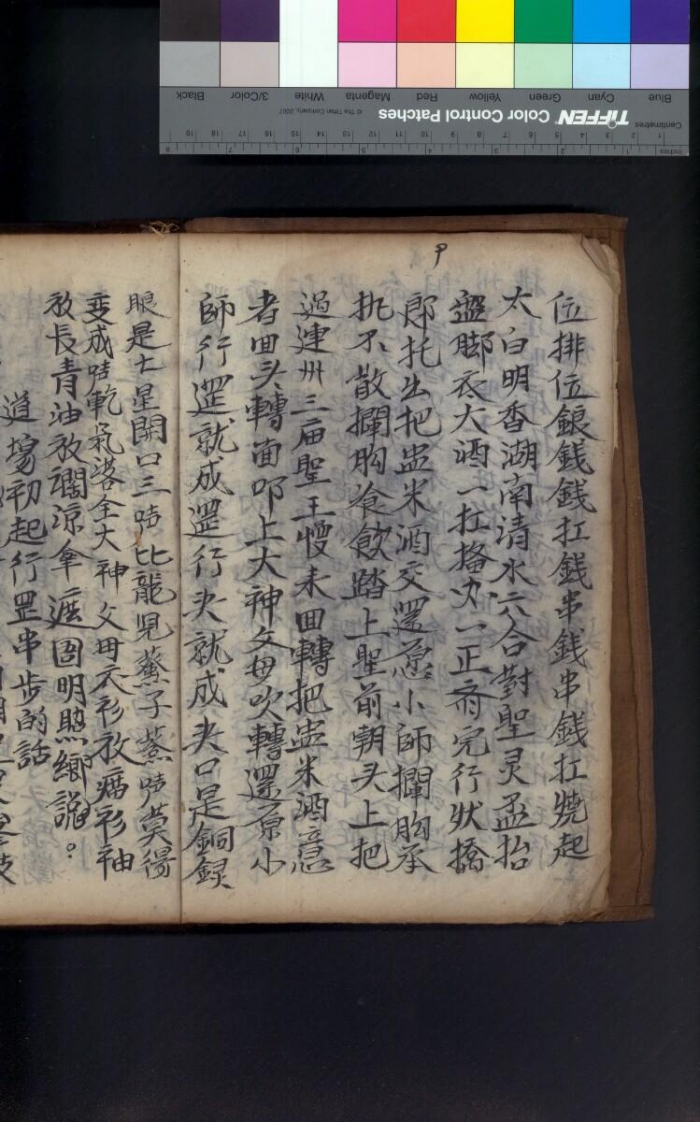 位排位銀錢錢扛錢串錢串錢扛燒起
太白明香湖南清水六合對聖灵孟抬
盤脚衣大酒一扛 一正斋完行狀橋
郎托出把盅米酒交還 小師攔胸承
执不散攔胸飡飲踏上聖前朝头上把
過連州三庙聖王 未回轉把盅米酒意
者回头轉面叩上大神父母吹轉還原小
師行罡就成罡行决就成决口是銅録
眼是七星開口三 比龍児 子 莫得
变成 乾 落全大神父母衣衫放 衫袖
放長青油放濶凉傘遮囸明照鄉說。
道塲初起行罡串步的話
Blue Cyan Green Yellow Red Magenta White 3/Color Black
TIFFEN Color Control Patches
© The Tiffen Company, 2007
Centimetres
Inches